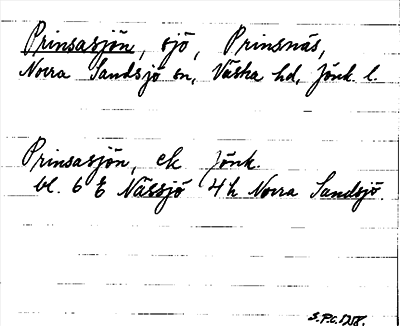 Prinsasjön, sjö, Prinsnäs,
Norra Sandsjö sn, Västra hd, Jönk. l.
Prinsasjön, ek Jönk.
bl. 6 E Nässjö 4h Norra Sandsjö.
S.P.C. 1958.